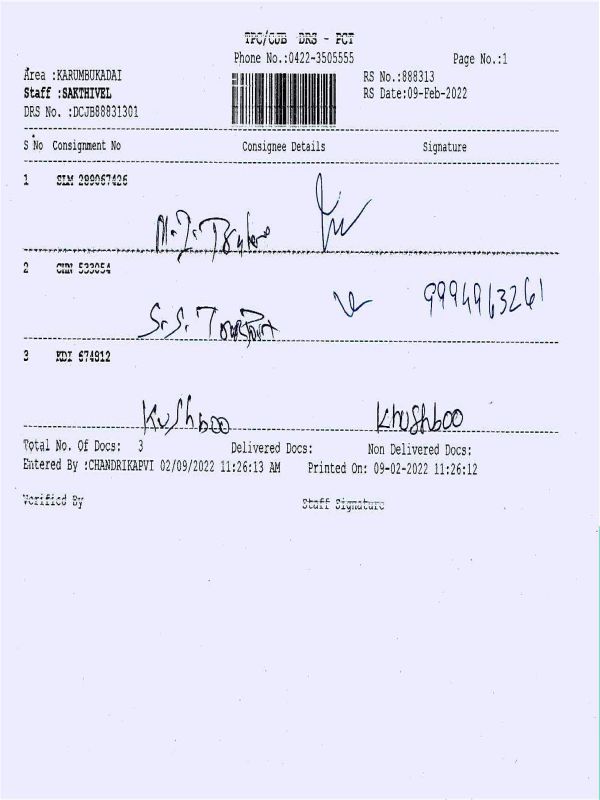 TPC/CJB DRS - PCT
Phone No.:0422-3505555 Page No.:1
Area :KARUMBUKADAI RS No.:888313
Staff :SAKTHIVEL RS Date:09-Feb-2022
DRS No. :DCJB88831301
S No Consignment No Consignee Details Signature
1 SLM 289067426
2 CHN 533054
9994963261
S.S. Transport
3 KDI 674812
Kushboo Khushboo
Total No. Of Docs: 3 Delivered Docs: Non Delivered Docs:
Entered By :CHANDRIKAPVI 02/09/2022 11:26:13 AM Printed On: 09-02-2022 11:26:12
Verified By Staff Signature